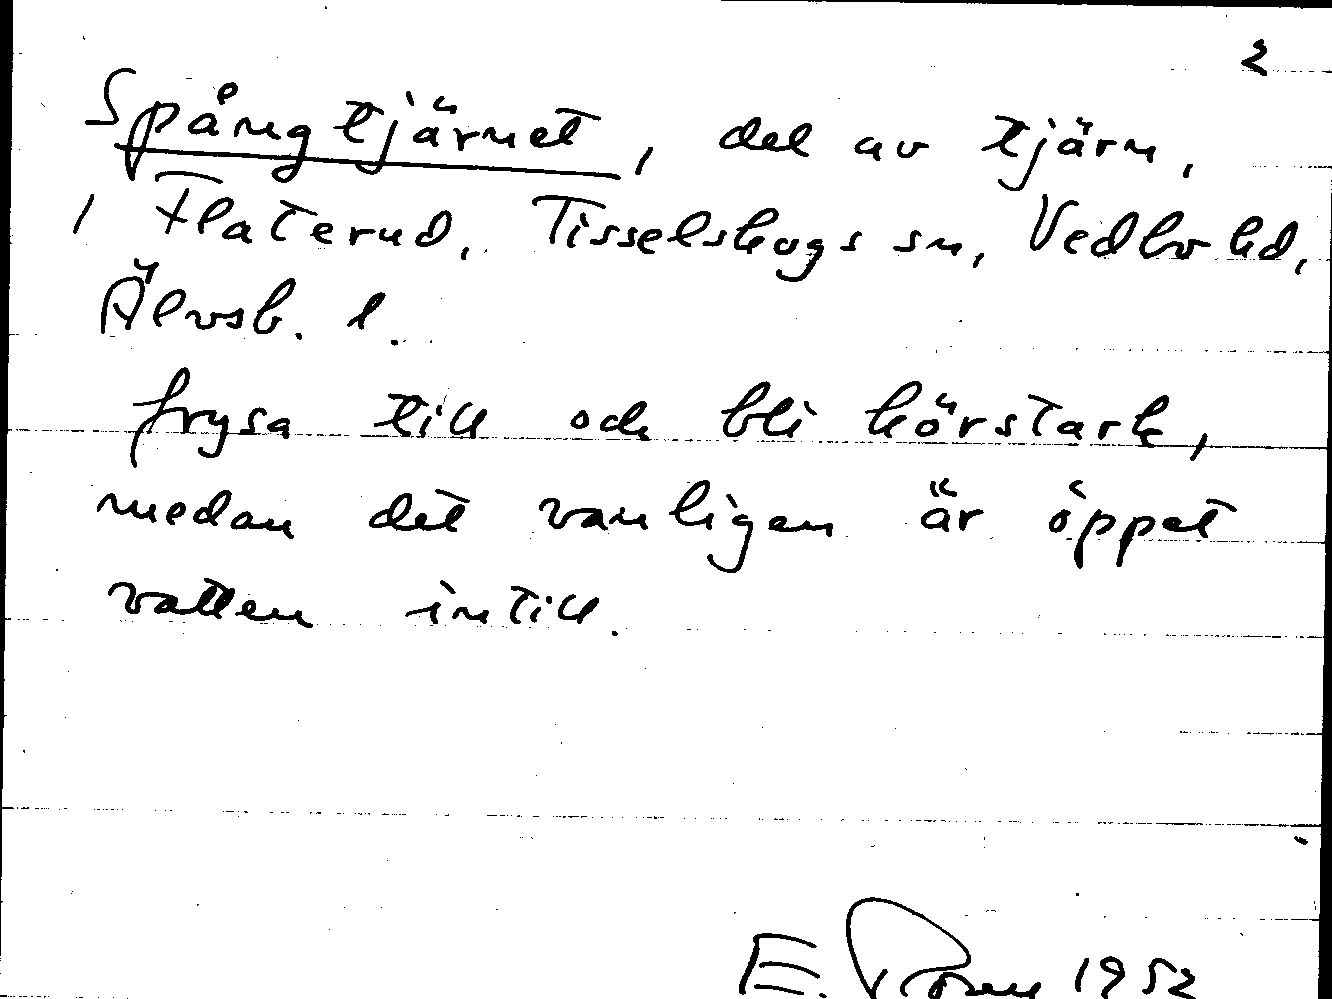 2
Spångtjärnet, del av tjärn,
1 Flaterud, Tisselskogs sn, Vedbo hd,
Älvsb. l.
frysa till och bli körstark,
medan det vanligen är öppet
vatten intill.
E. 1952